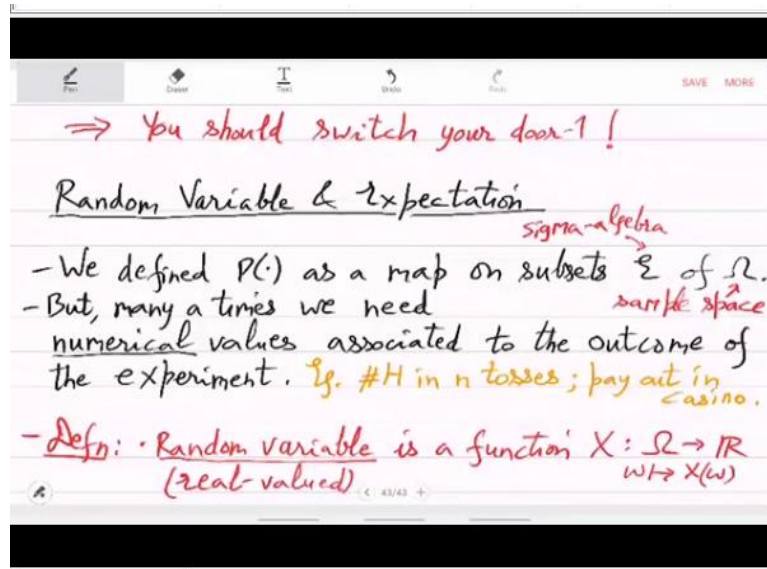 Pen Eraser Text Undo Redo SAVE MORE
⇒ You should switch your door-1 !
Random Variable & Expectation
sigma-algebra
- We defined P(·) as a map on subsets Ɛ of Ω.
- But, many a times we need
sample space
numerical values associated to the outcome of
the experiment. Eg. #H in n tosses ; pay out in
casino.
- Defn: · Random variable is a function X : Ω → ℝ
(real-valued) ω ↦ X(ω)
< 43/43 +